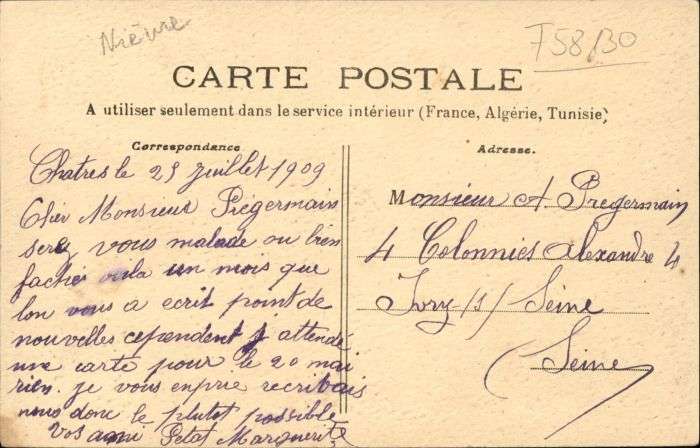 Nièvre
F58/30
CARTE POSTALE
A utiliser seulement dans le service intérieur (France, Algérie, Tunisie)
Correspondance
Chatres le 25 juillet 1909
Cher Monsieur Prégermain
serez vous malade ou bien
faché voila un mois que
lon vous a ecrit point de
nouvelles cependent j attendé
une carte pour le 20 mai
rien. je vous enprie recribais
nous donc le plutot possible
Vos ami Petat Marguerite
Adresse.
Monsieur A Pregermain
4 Colonnies Alexandre 4
Ivry /s/ Seine
(Seine)